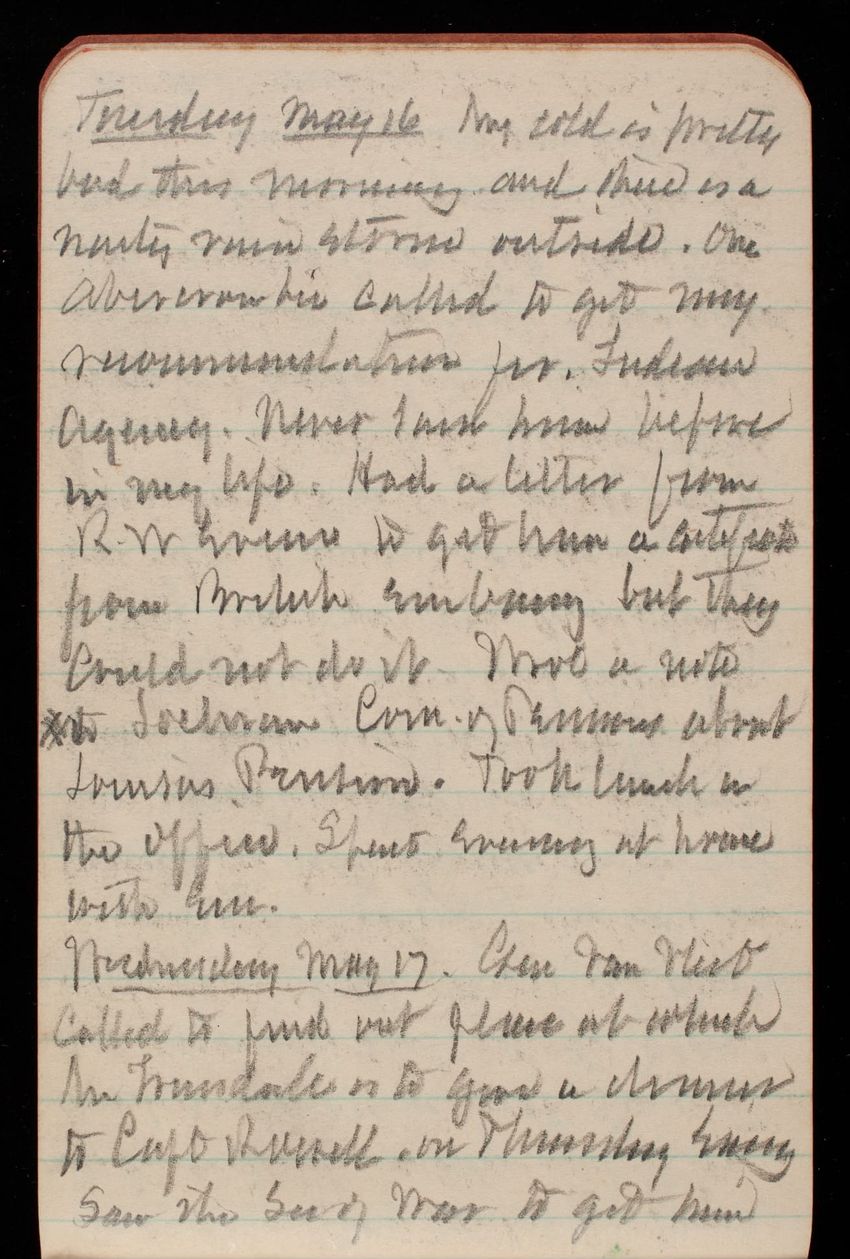 Tuesday May 16 My cold is pretty
bad this morning and there is a
nasty rain storm outside. One
Abercrombie called to get my
recommendation for. Indian
Agency. Never saw him before
in my life. Had a letter from
R. W Evans to get him a
from British Embassy but they
could not do it. Wrote a note
to Lochran Com. of Pensions about
Louisas Pension. Took lunch in
the office. Spent evening at home
with Em.
Wednesday May 17. Genl Van Vliet
called to find out place at which
Mr Truesdale is to give a dinner
to Capt Russell. on Thursday Evng
Saw the Sec of War to get him